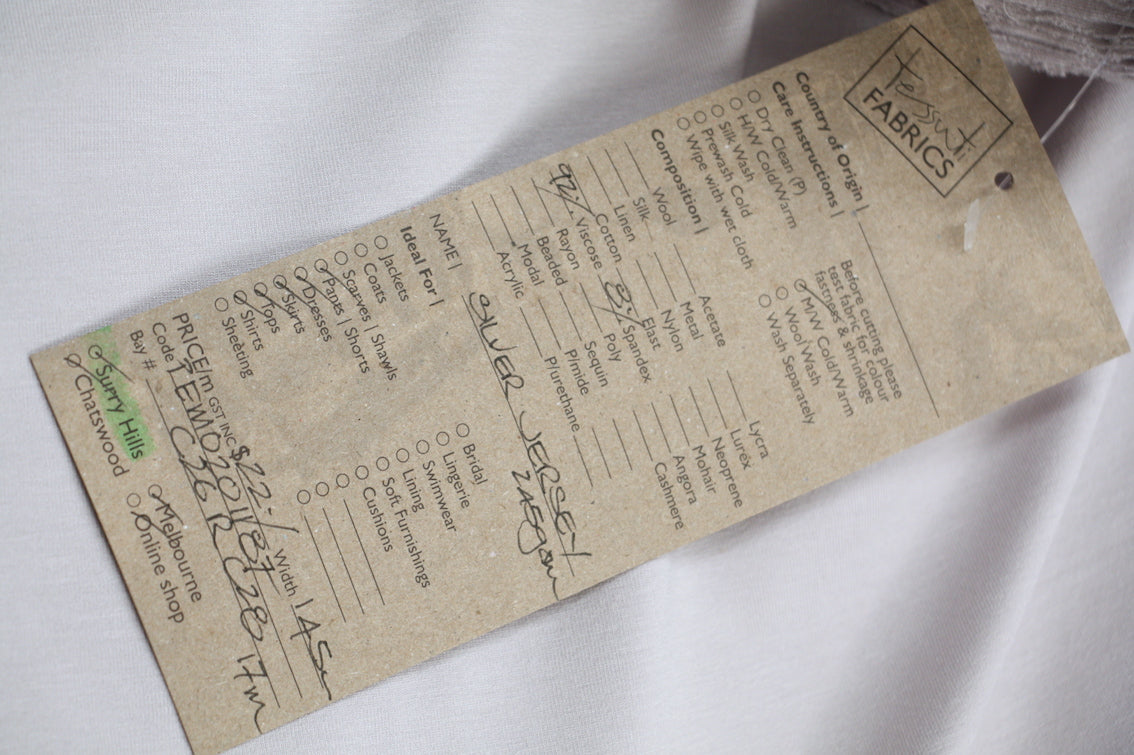 tessuti
FABRICS
Country of Origin |
Care Instructions |
Before cutting please
test fabric for colour
fastness & shrinkage
Dry Clean (P)
H/W Cold/Warm
Silk Wash
Prewash Cold
Wipe with wet cloth
M/W Cold/Warm
Wool Wash
Wash Separately
Composition |
Wool
Silk
Linen
Cotton
92% Viscose
Rayon
Beaded
Modal
Acrylic
Acetate
Metal
Nylon
Elast
8% Spandex
Poly
Sequin
P/mide
P/urethane
Lycra
Lurex
Neoprene
Mohair
Angora
Cashmere
NAME | SILVER JERSEY
Ideal For |
Jackets
Coats
Scarves | Shawls
Pants | Shorts
Dresses
Skirts
Tops
Shirts
Sheeting
Bridal
Lingerie
Swimwear
Lining
Soft Furnishings
Cushions
PRICE/m GST INC $22-/ Width 145
Code TEM02201187
Bay # C26 R C28 17m
Surry Hills
Chatswood
Melbourne
Online shop